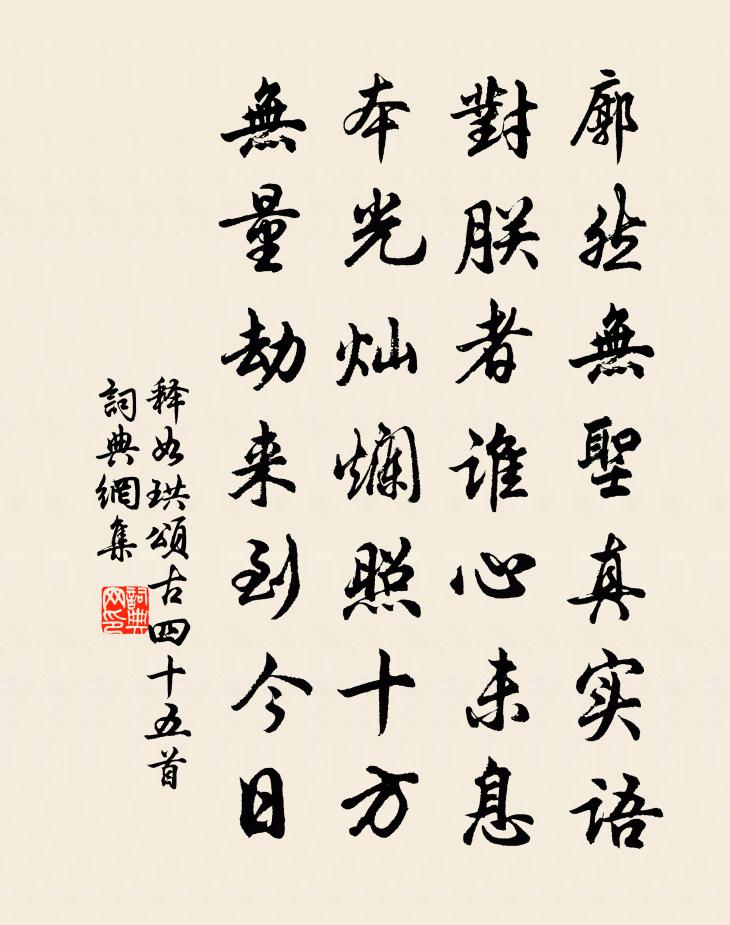 廓然無聖真实语
對朕者谁心未息
本光灿爛照十方
無量劫来到今日
释如珙頌古四十五首
詞典網集
詞典网印